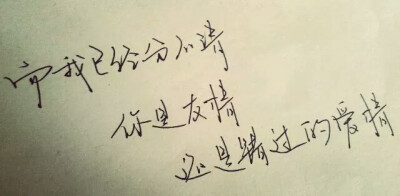 常我已经分不清
你是友情
还是错过的爱情